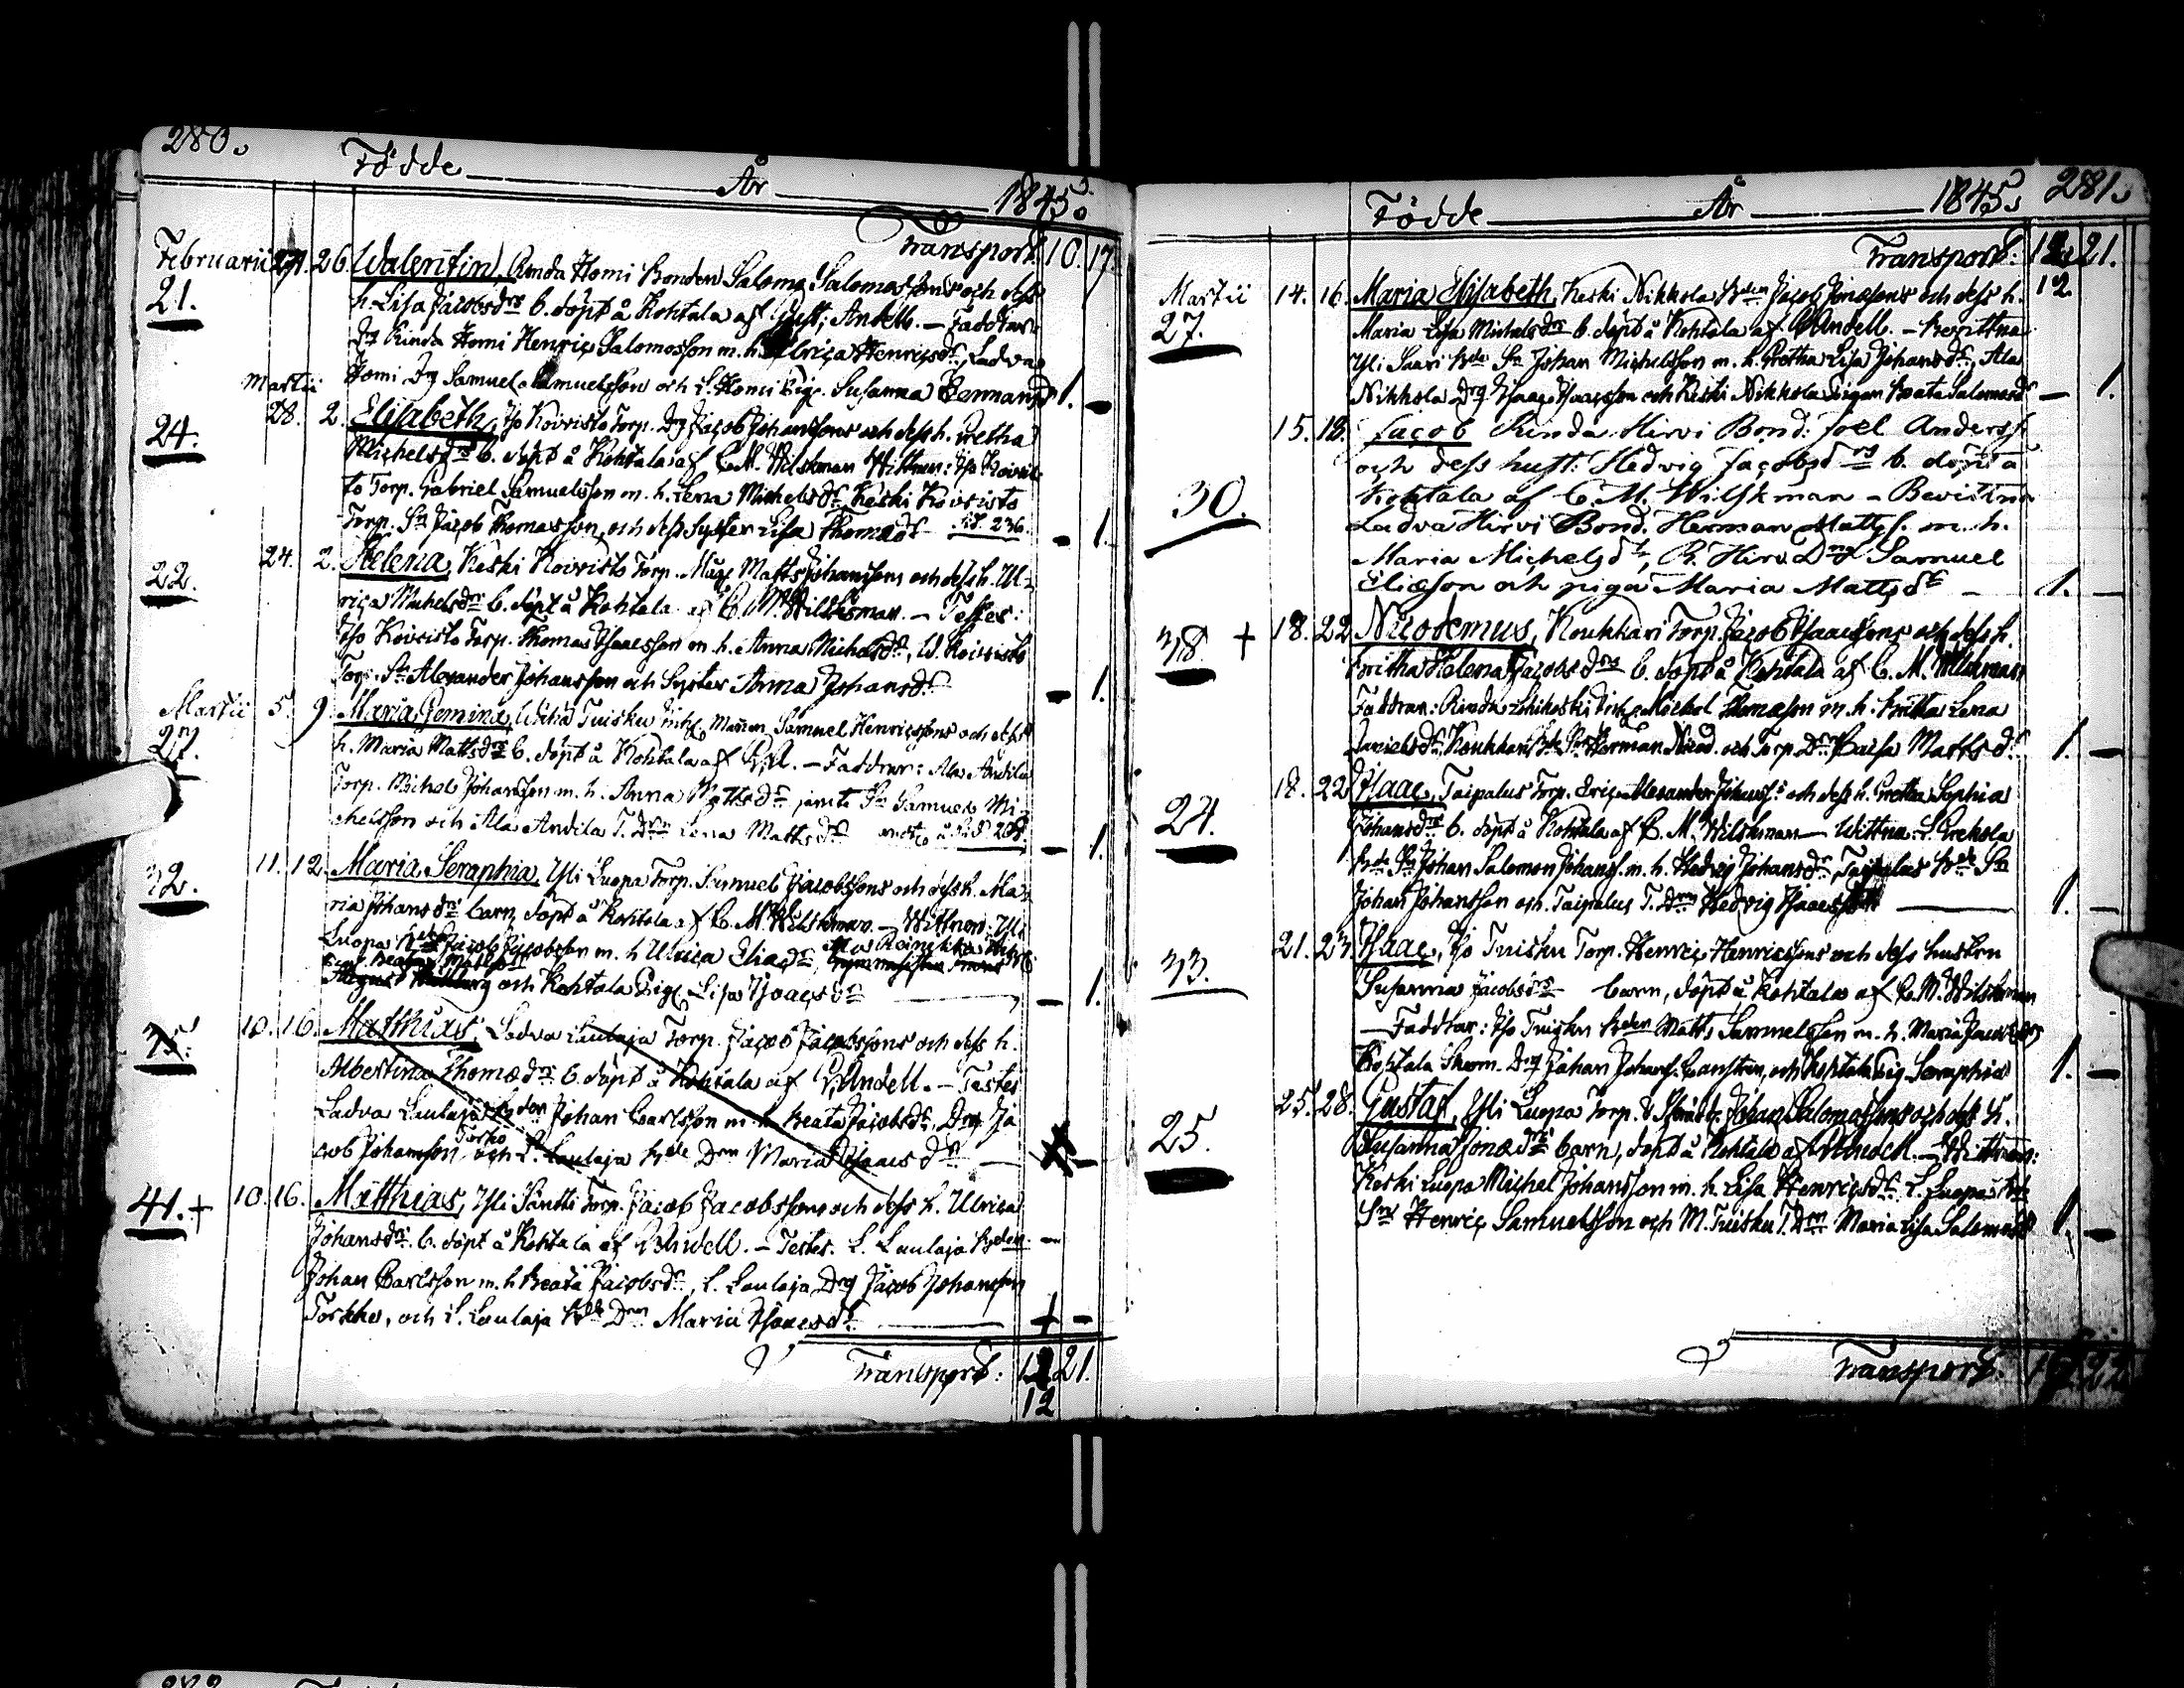 280.
Födde År 1845.
Transport. 10. 17.
Februarii 26. Walentin, Rinda Homi Bonden Salomo Salomossons och dess
21. h. Lisa Jacobsdrs b. döpt å Kohtala af Andell. — Faddrar:
Drg Rinda Homi Henric Salomosson m. h. Ulrica Henricsdr, Ladva
Homi Drg Samuel Samuelsson och L. Homi Pige Susanna Hermansdr 1. —
Martii
24. 28. 2. Elisabeth, Iso Koivisto Torp. Drg Jacob Johanssons och dess h. Gretha
Michelsdrs b. döpt å Kohtala af C. M. Wilskman Wittnen: Iso Koivis-
to Torp. Gabriel Samuelsson m. h. Lena Michelsdr Keski Koivisto
Torp. Sn Jacob Thomasson, och dess Syster Lisa Thomædr 236. — 1.
22. 24. 2. Helena, Keski Koivisto Torp. Måg Matts Johanssons och dess h. Ul-
rica Michelsdrs b. döpt å Kohtala af C. M. Wilskman. — Testes:
Iso Koivisto Torp. Thomas Isaacsson m. h. Anna Michelsdr, W. Koivisto
Torp. Sn Alexander Johansson och Syster Anna Johansdr — 1.
Martii 5. 9. Maria Jemina, Tuisku Samuel Henricssons och dess
27. h. Maria Mattsdrs b. döpt å Kohtala af — Faddrar: Ala Andila
Torp. Michel Johansson m. h. Anna Mattsdr jemte Sn Samuel Mi-
chelsson och Ala Andila T. Drn Lena Mattsdr — 1.
32. 11. 12. Maria Seraphia, Yli Luopa Torp. Samuel Jacobssons och dess h. Ma-
ria Johansdrs barn, döpt å Kohtala af C. M. Wilskman. — Wittnen: Yli
Luopa Jacob Jacobsson m. h. Ulrica Eliædr,
och Kohtala Pige Lisa Isaacsdr — 1.
35. 10. 16. Matthias, Ladva Laulaja Torp. Jacob Jacobssons och dess h.
Albertina Thomædrs b. döpt å Kohtala af Andell. — Testes
Ladva Laulaja Bden Johan Carlsson m. h. Beata Jacobsdr, Drg Ja
cob Johansson Torkko och L. Laulaja Bde Drn Maria Isaacsdr —
41. + 10. 16. Matthias, Yli Säntti Torp. Jacob Jacobssons och dess h. Ulrica
Johansdrs. b. döpt å Kohtala af Andell. — Testes. L. Laulaja Bden
Johan Carlsson m. h. Beata Jacobsdr, L. Laulaja Drg Jacob Johansson
Torkko, och L. Laulaja Bde Drn Maria Isaacsdr — + —
Transport: 21.
12
Födde År 1845. 281.
Transport: 21.
12.
Martii 14. 16. Maria Elisabeth, Keski Nikkola Bden Jacob Jonæsons och dess h.
27. Maria Lisa Michelsdrs b. döpt å Kohtala af Andell. — Bevittna
Yli Saari Bde Sn Johan Michelsson m. h. Gretha Lisa Johansdr, Ala
Nikkola Drg Isaac Isaacsson och Keski Nikkola Pigan Beata Salomosdr — 1.
15. 18. Jacob Rinda Hirvi Bond: Joel Anderss:
och dess hust: Hedvig Jacobsdrs b. döpt å
30. Kohtala af C. M. Wilskman — Bevittna
Ladva Hirvi Bond. Herman Mattss. m. h.
Maria Michelsdr, R. Hirvi Dng Samuel
Eliæson och piga Maria Mattsdr — 1. —
38. + 18. 22 Nicodemus, Koukkari Torp. Jacob Isaacssons och dess h.
Gretha Helena Jacobsdrs b. döpt å Kohtala af C. M. Wilskman
Faddrar: Rinda Michel Thomæson m. h. Gretha Lena
Danielsdr, Koukkari Sn Herman och Torp. Dr Caisa Mattsdr 1. —
18. 22. Isaac, Taipalus Torp. Alexander Johanss:s och dess h. Gretha Sophia
24. Johansdrs b. döpt å Kohtala af C. M. Wilskman — Wittna: L.
Bde Sn Johan Salomon Johanss. m. h. Hedvig Johansdr, Taipalus Bde Sn
Johan Johansson och Taipalus T. Drn Hedvig Isaacsdr — 1. —
21. 23. Isaac, Iso Tuisku Torp. Henric Henricssons och dess hustru
33. Susanna Jacobsdrs barn, döpt å Kohtala af C. M. Wilskman
— Faddrar: Iso Tuisku Bden Matts Samuelsson m. h. Maria Jacobsdr,
Kohtala Drg Johan Johanss. och Kohtala Pig Seraphia 1. —
25. 28. Gustaf, Yli Luopa Torp. Johan Salomossons och dess h.
25. Susanna Jonædrs barn, döpt å Kohtala af Andell. — Wittnen:
Keski Luopa Michel Johansson m. h. Lisa Henricsdr, L. Luopa Bde
Sn Henric Samuelsson och M. Tuisku T. Drn Maria Lisa Salomosdr 1. —
Transport: